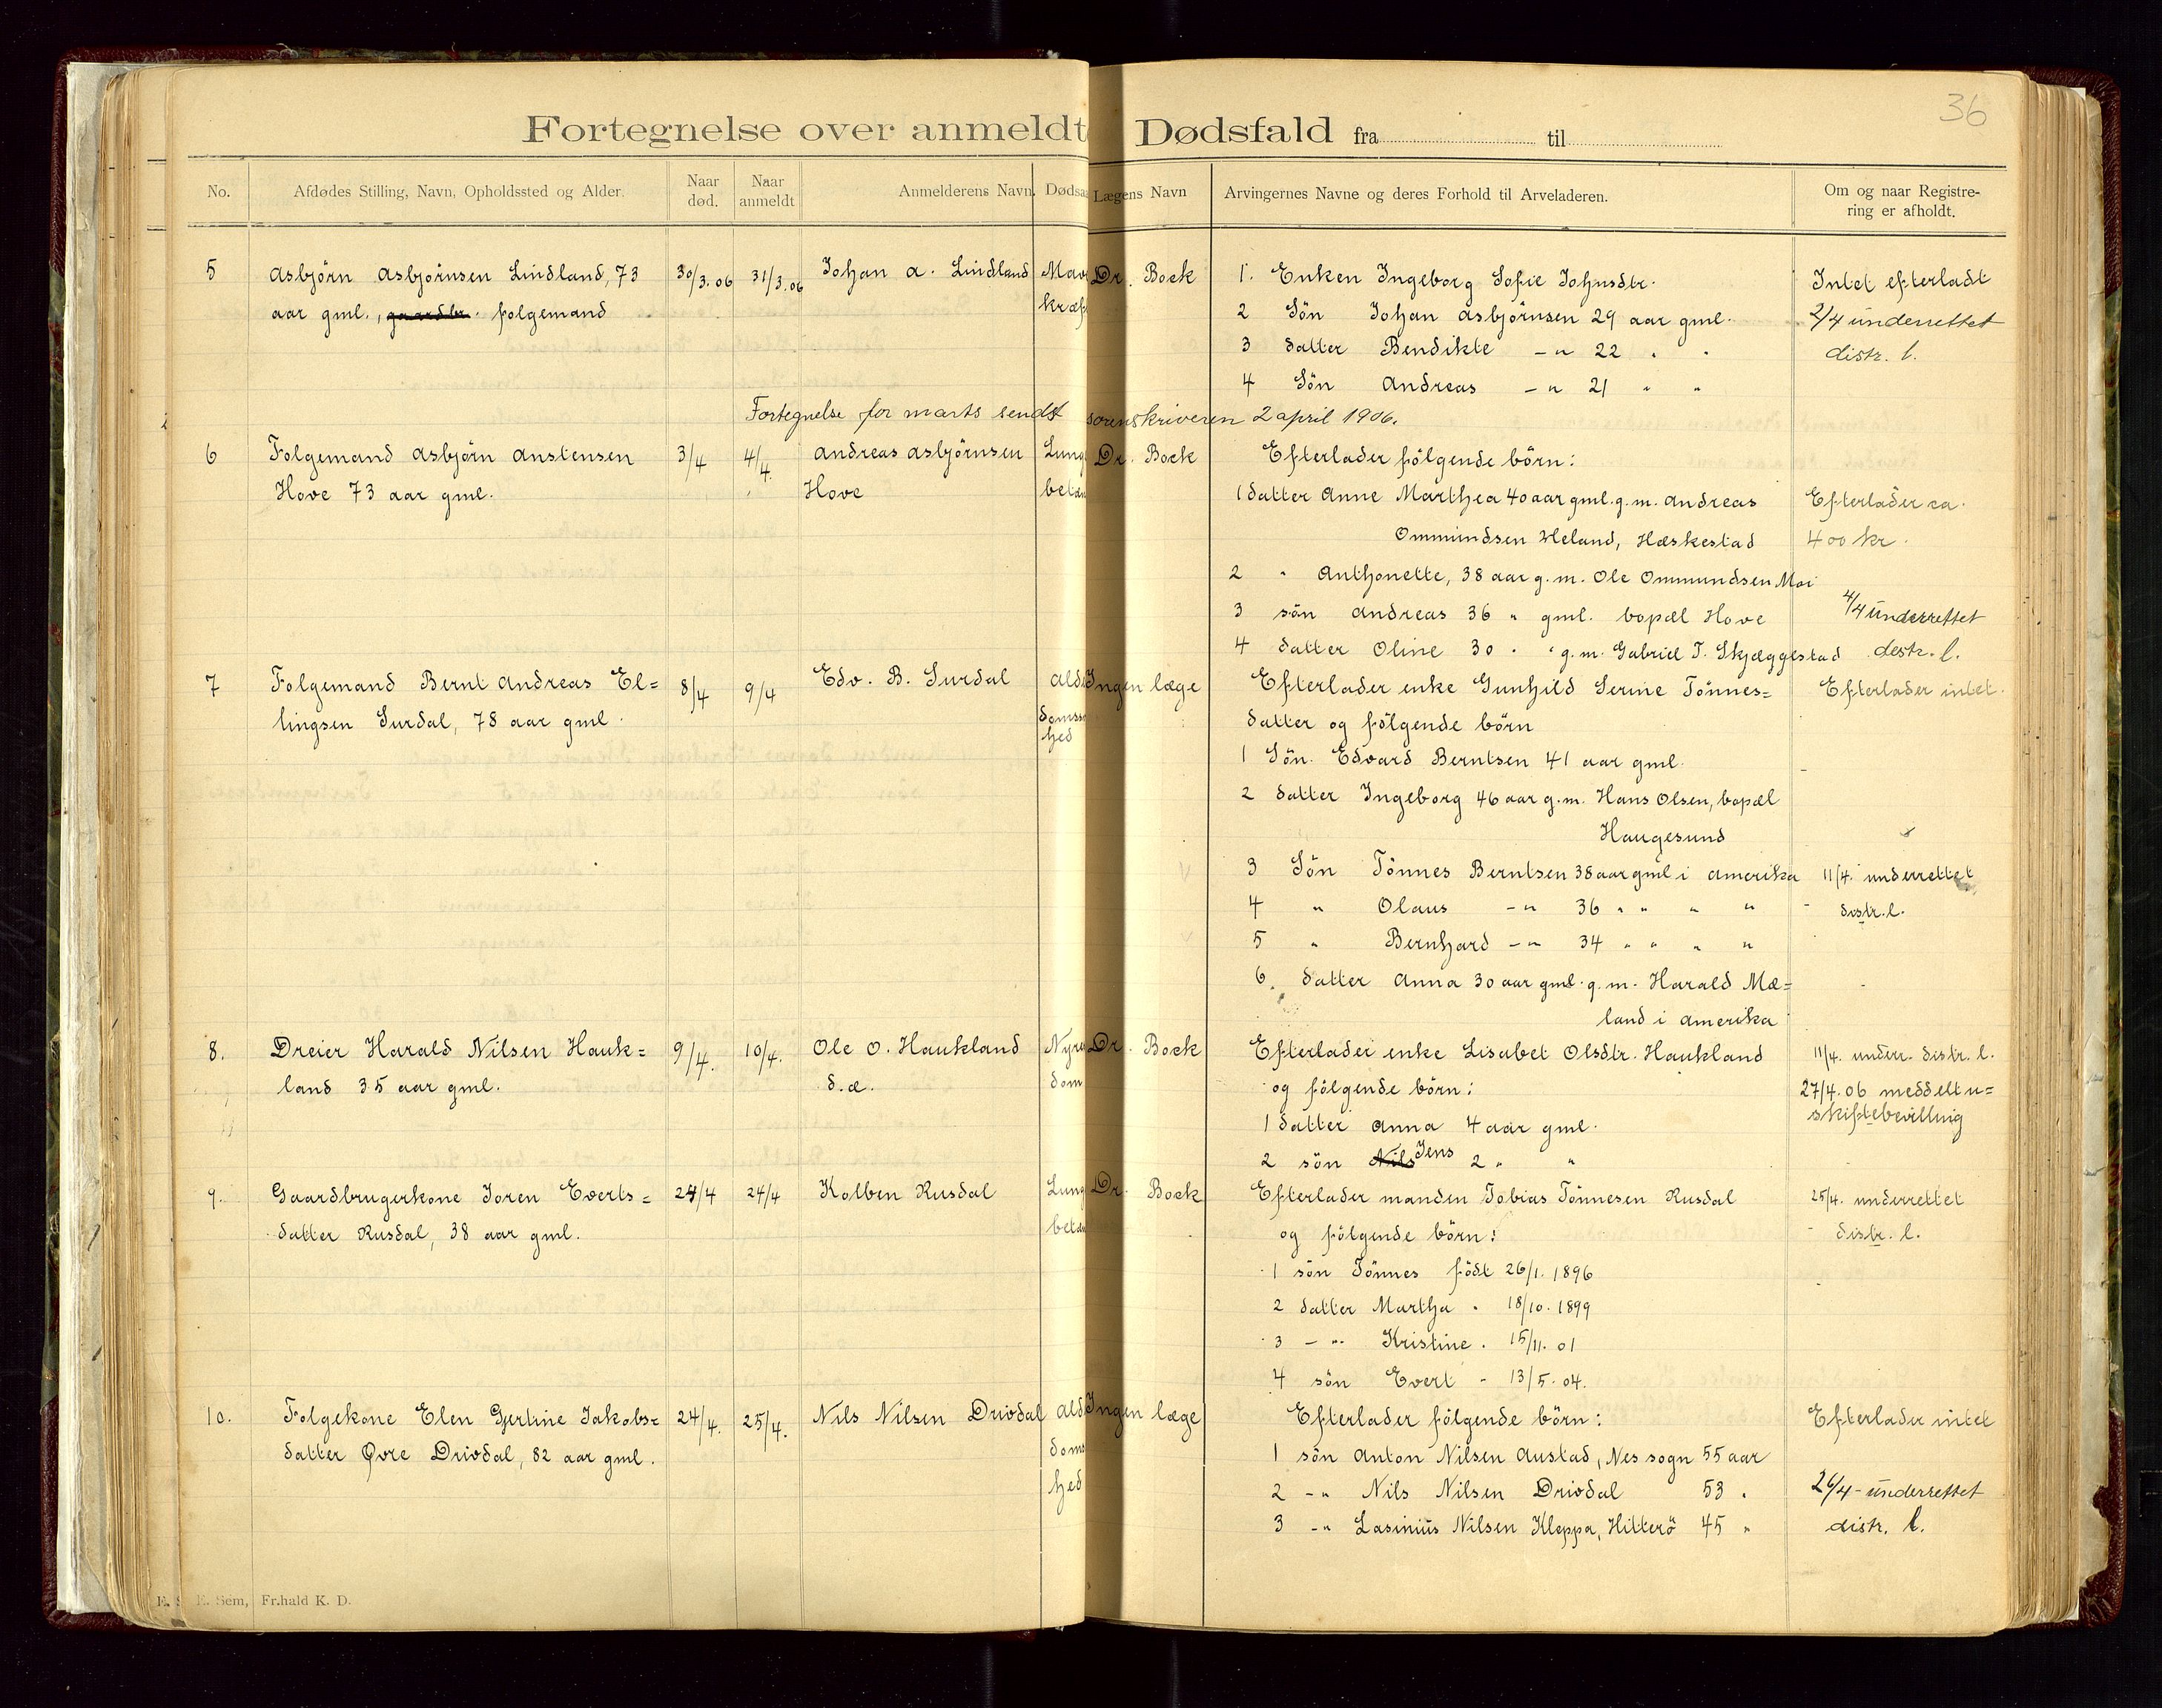 36
Fortegnelse over anmeldt Dødsfald fra til
No. Afdødes Stilling, Navn, Opholdssted og Alder. Naar død. Naar anmeldt Anmelderens Navn. Dødsaa Lægens Navn Arvingernes Navne og deres Forhold til Arveladeren. Om og naar Registre-
ring er afholdt.
5 Asbjörn Asbjörnsen Lindland, 73 30/3.06 31/3.06 Johan A. Lindland Mav Dr. Bock 1. Enken Ingeborg Sofie Johnsdtr. Intet efterladt
aar gml., gaardbr. folgemand kræf 2 Sön Johan Asbjörnsen 29 aar gml. 2/4 underrettet
3 Datter Bendikte -"- 22 " " distr. l.
4 Sön Andreas -"- 21 " "
Fortegnelse for marts sendt sorenskriveren 2 april 1906.
6 Folgemand Asbjörn Anstensen 3/4 4/4. Andreas Asbjörnsen Lung Dr. Bock Efterlader fölgende börn:
Hove 73 aar gml. Hove betæn 1 Datter Anne Marthea 40 aar gml. g.m. Andreas Efterlader ca.
Ommundsen Heland, Hæskestad 400 kr.
2 " Anthonette, 38 aar g.m. Ole Ommundsen Moi
3 sön Andreas 36 " gml. bopæl Hove 4/4 underrettet
4 Datter Oline 30 " " g.m. Gabriel T. Skjæggestad distr. l.
7 Folgemand Bernt Andreas El= 8/4 9/4 Edv. B. Surdal ald Ingen læge Efterlader enke Gunhild Serine Tönnes= Efterlader intet.
lingsen Surdal, 78 aar gml. domss datter og fölgende börn
hed
1 Sön. Edvard Berntsen 41 aar gml.
2 Datter Ingeborg 46 aar g.m. Hans Olsen, bopæl
Haugesund
3 Sön Tönnes Berntsen 38 aar gml i Amerika 11/4. underrettet
4 " Olaus -"- 36 " " " " distr. l.
5 " Bernhard -"- 34 " " " "
6. Datter Anna 30 aar gml. g.m. Harald Mæ=
land i Amerika
8. Dreier Harald Nilsen Hauk= 9/4. 10/4. Ole O. Haukland Nyre Dr. Bock Efterlader enke Lisabet Olsdtr. Haukland 11/4. underr. distr. l.
land 35 aar gml. d.æ. dom og fölgende börn: 27/4.06 meddelt u=
1 Datter Anna 4 aar gml. skiftebevilling
2 sön Nils Jens 2 " "
9. Gaardbrugerkone Joren Everts= 24/4 24/4 Kolben Rusdal Lung Dr. Bock Efterlader manden Tobias Tönnesen Rusdal 25/4. underrettet
datter Rusdal, 38 aar gml. betæn og fölgende börn: distr. l.
1 sön Tönnes födt 26/1. 1896
2 datter Martha " 18/10. 1899
3 -"- Kristine " 15/11. 01
4 sön Evert " 13/5. 04.
10. Folgekone Elen Gjertine Jakobs= 24/4. 25/4. Nils Nilsen Drivdal ald Ingen læge Efterlader fölgende börn: Efterlader intet
datter Øvre Drivdal, 82 aar gml. doms 1 sön Anton Nilsen Austad, Nes sogn 55 aar
hed 2 -"- Nils Nilsen Drivdal 53 " 26/4 - underrettet
3 -"- Lasinius Nilsen Kleppa, Hitterö 45 " distr. l.
E. Sem, Fr.hald K. D.